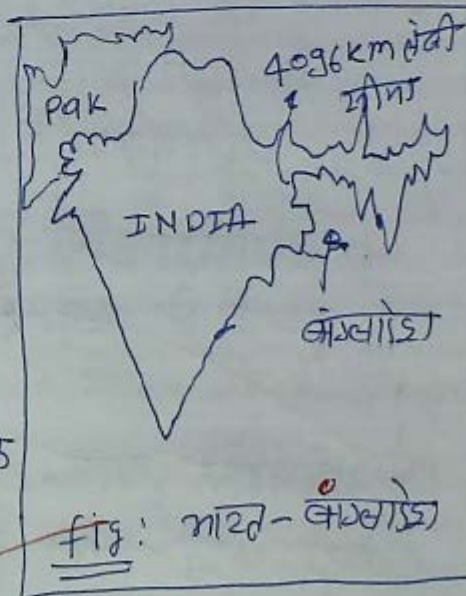 Pak
4096 km लंबी
सीमा
INDIA
बांग्लादेश
5
fig: भारत - बांग्लादेश